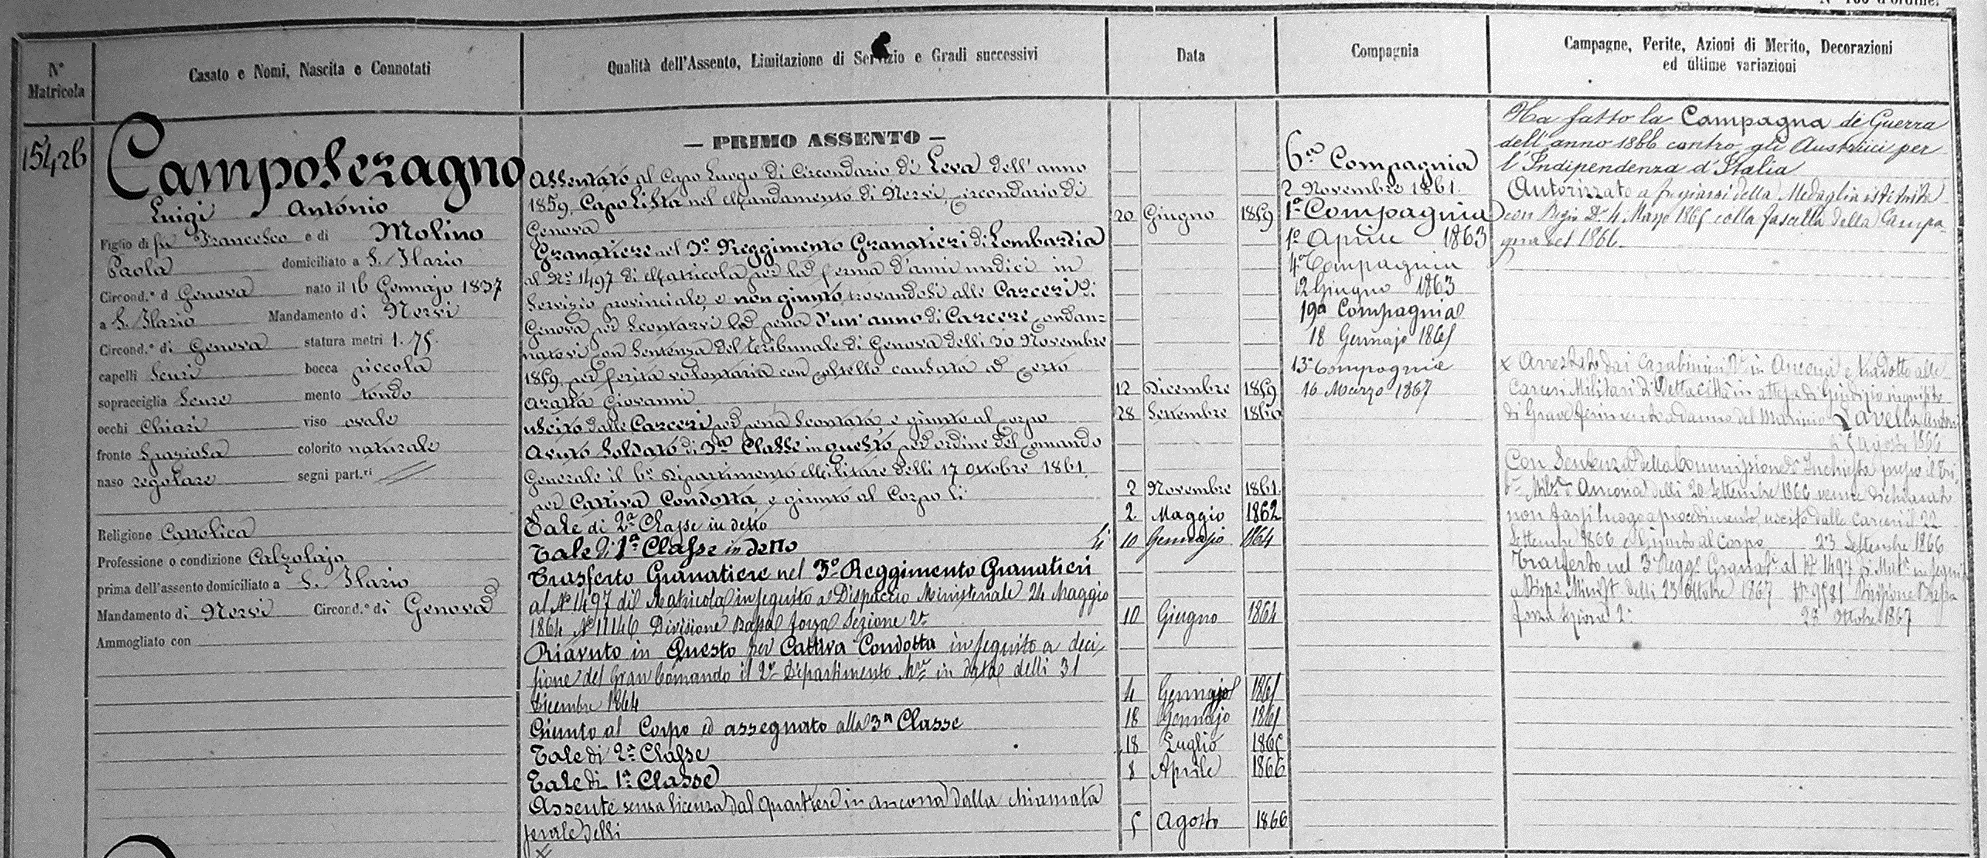 N° 100 d'ordine.
N° Matricola
Casato e Nomi, Nascita e Connotati
Qualità dell'Assento, Limitazione di Servizio e Gradi successivi
Data
Compagnia
Campagne, Ferite, Azioni di Merito, Decorazioni
ed ultime variazioni
15426
Campolezagno
Luigi Antonio
Figlio di fu Francesco e di Molino
Paola domiciliato a S. Ilario
Circond.° di Genova nato il 16 Gennajo 1837
a S. Ilario Mandamento di Nervi
Circond.° di Genova statura metri 1.75.
capelli Scuri bocca piccola
sopracciglia Scure mento tondo
occhi Chiari viso ovale
fronte Spaziosa colorito naturale
naso regolare segni part.ri
Religione Cattolica
Professione o condizione Calzolajo
prima dell'assento domiciliato a S. Ilario
Mandamento di Nervi Circond.° di Genova
Ammogliato con
— PRIMO ASSENTO —
Assentato al Capo Luogo di Circondario di Leva dell'anno
1859, Capo Lista nel Mandamento di Nervi, circondario di
Genova 20 Giugno 1859
Granatiere nel 3° Reggimento Granatieri di Lombardia
al N° 1497 di Matricola per la ferma d'anni undici in
Servizio provinciale, e non giunto trovandosi alle Carceri di
Genova per scontarvi la pena d'un'anno di Carcere condan-
natovi con Sentenza del tribunale di Genova delli 30 Novembre
1859, per ferita volontaria con coltello causata a certo
Aratta Giovanni 12 Dicembre 1859
uscito dalle Carceri per pena Scontata e giunto al corpo 28 Settembre 1860
Avuto Soldato di 3a Classe in questo per ordine del Comando
Generale il 6° Dipartimento Militare delli 17 Ottobre 1861
per Cattiva Condotta, e giunto al Corpo li 2 Novembre 1861
Tale di 2a Classe in detto 2 Maggio 1862
Tale di 1a Classe in detto li 10 Gennajo 1864
Trasferto Granatiere nel 3° Reggimento Granatieri
al N° 1497 di Matricola in seguito a Dispaccio Ministeriale 24 Maggio
1864 N° 11146 Divisione Bassa forza Sezione 2a 10 Giugno 1864
Riavuto in Questo per Cattiva Condotta in seguito a deci-
sione del Gran Comando il 2° Dipartimento M.re in data delli 31
Dicembre 1864 4 Gennajo 1865
Giunto al Corpo ed assegnato alla 3a Classe 18 Gennajo 1865
Tale di 2a Classe 18 Luglio 1865
Tale di 1a Classe 8 Aprile 1866
Assente senza licenza dal quartiere in Ancona dalla chiamata
serale delli 5 Agosto 1866
x
6a Compagnia
2 Novembre 1861.
1a Compagnia
1° Aprile 1863
4a Compagnia
12 Giugno 1863
19a Compagnia
18 Gennajo 1865
13a Compagnia
16 Marzo 1867
Ha fatto la Campagna di Guerra
dell'anno 1866 contro gli Austriaci per
l'Indipendenza d'Italia
Autorizzato a fregiarsi della Medaglia istituita
con Regio D.° 4 Marzo 1865 colla fascetta della Campa-
gna del 1866.
x Arrestato dai Carabinieri R.i in Ancona e tradotto alle
Carceri Militari di detta città in attesa di Giudizio
di Grave ferimento a danno del Lavella
5 Agosto 1866
Con Sentenza della Commissione d'Inchiesta presso il Tri-
b.le Mil.re d'Ancona delli 20 Settembre 1866 venne dichiarato
non farsi luogo a procedimento, uscito dalle carceri il 22
Settembre 1866 e giunto al Corpo 23 Settembre 1866
Trasferto nel 3° Regg.° Granat.i al N° 1497 di Mat.a in seguito
a Disp. Minist. delli 23 Ottobre 1867 N° 9581 Divisione Bassa
forza Sezione 2a 28 Ottobre 1867